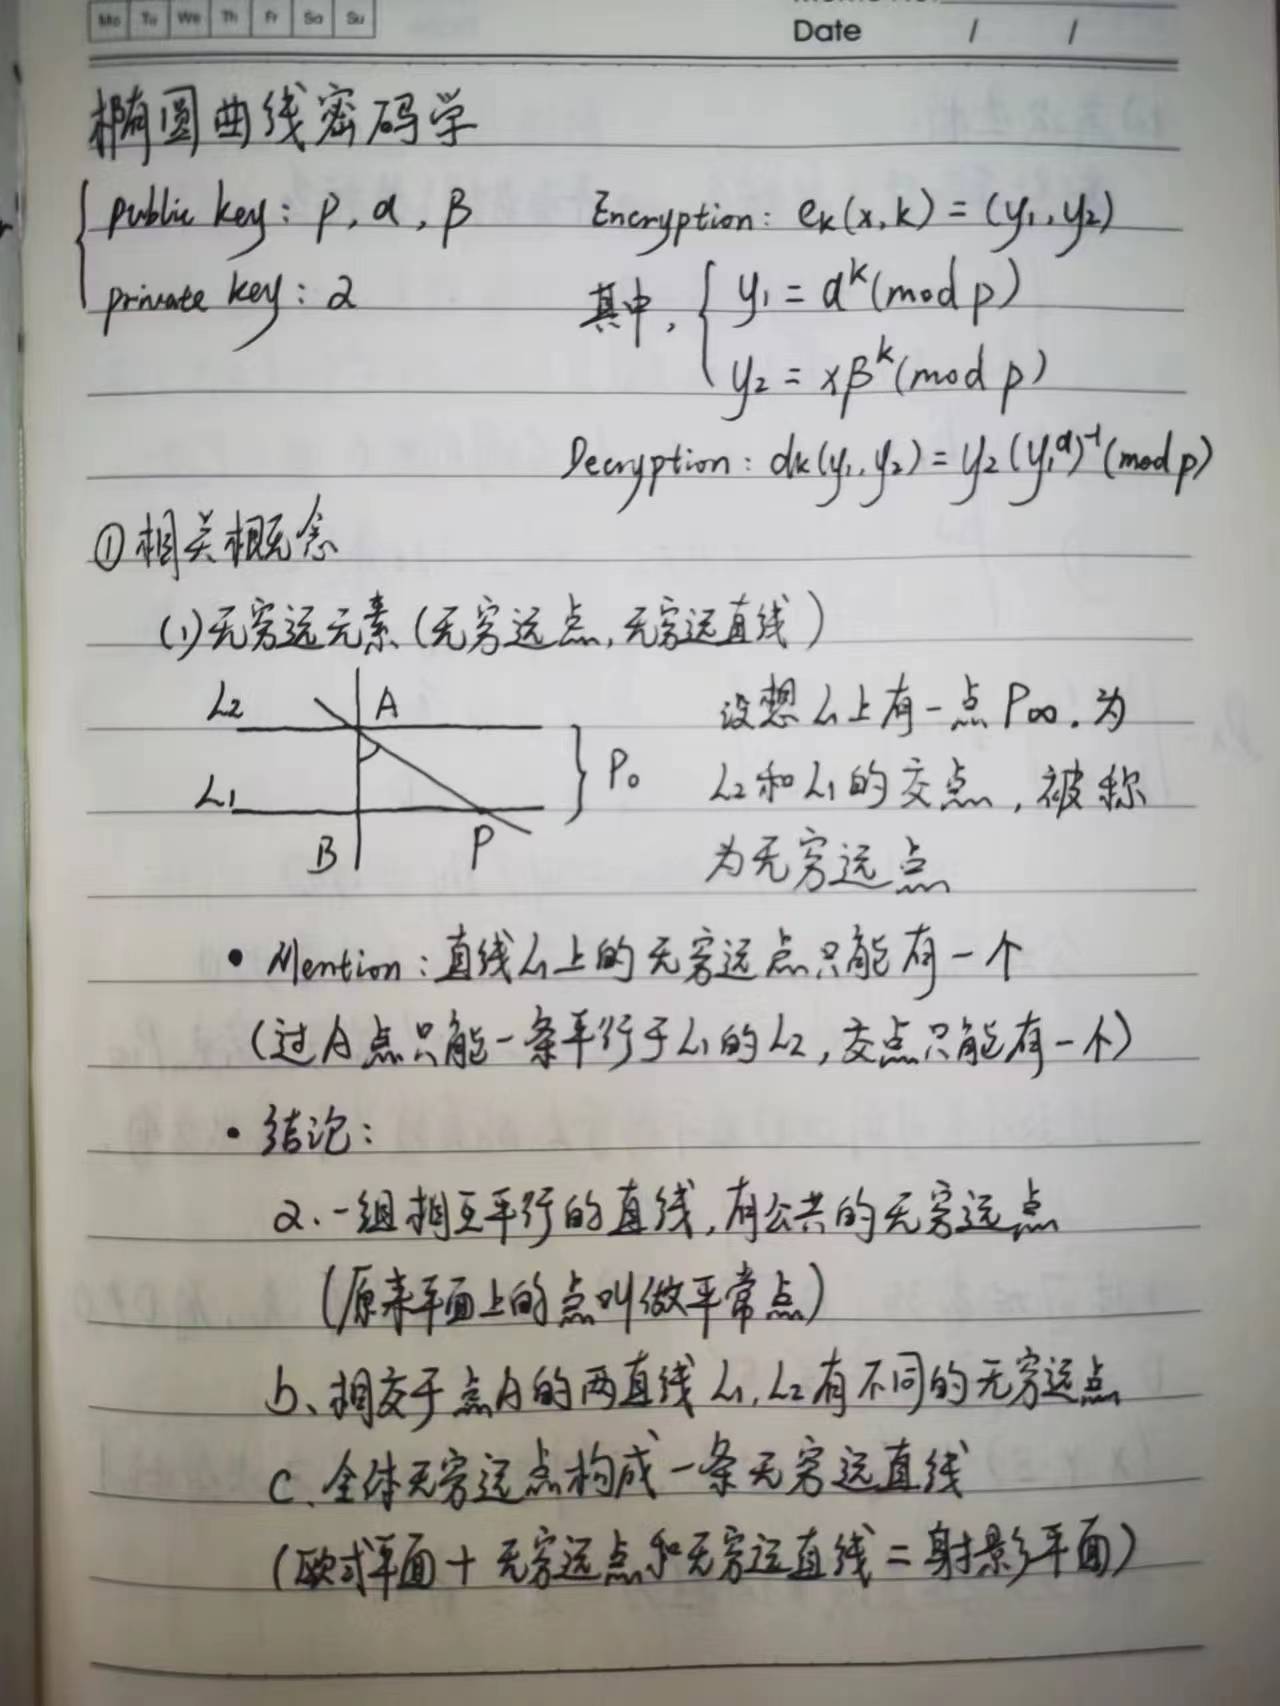 Mo Tu We Th Fr Sa Su
Date / /
椭圆曲线密码学
public key: p, α, β
private key: a
Encryption: eₖ(x, k) = (y₁, y₂)
其中, { y₁ = αᵏ (mod p)
y₂ = xβᵏ (mod p)
Decryption: dₖ(y₁, y₂) = y₂ (y₁ᵃ)⁻¹ (mod p)
① 相关概念
(1) 无穷远元素 (无穷远点, 无穷远直线)
L₂ A
L₁ P₀
B P
设想L₁上有一点P∞, 为
L₂和L₁的交点, 被称
为无穷远点
• Mention: 直线L₁上的无穷远点只能有一个
(过A点只能一条平行于L₁的L₂, 交点只能有一个)
• 结论:
a. 一组相互平行的直线, 有公共的无穷远点
(原来平面上的点叫做平常点)
b、相交于点A的两直线L₁, L₂有不同的无穷远点
c、全体无穷远点构成一条无穷远直线
(欧式平面 + 无穷远点和无穷远直线 = 射影平面)